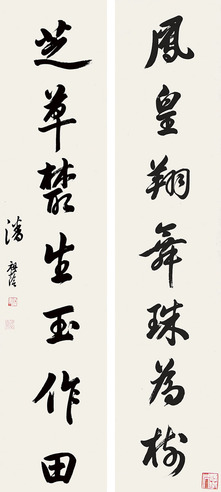 鳳皇翔舞珠為樹
芝草叢生玉作田
潘祖蔭